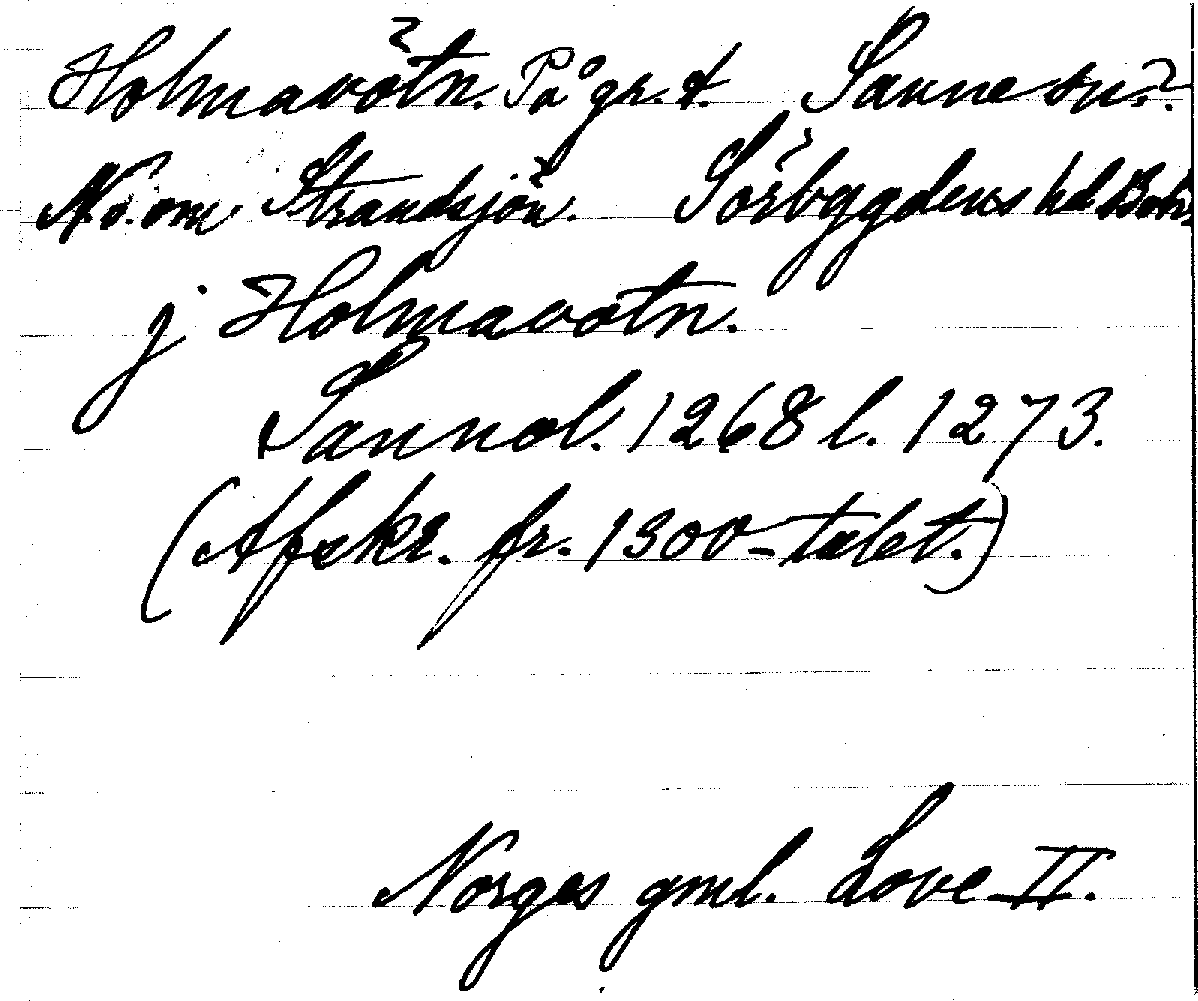 Holmavötn. På gr. t. Sanne sn?.
N. ö. om Strandsjön. Sörbygdens hd. Boh
j Holmavötn.
Sannol. 1268 l. 1273.
(Afskr. fr. 1300-talet.)
Norges gml. Love II.